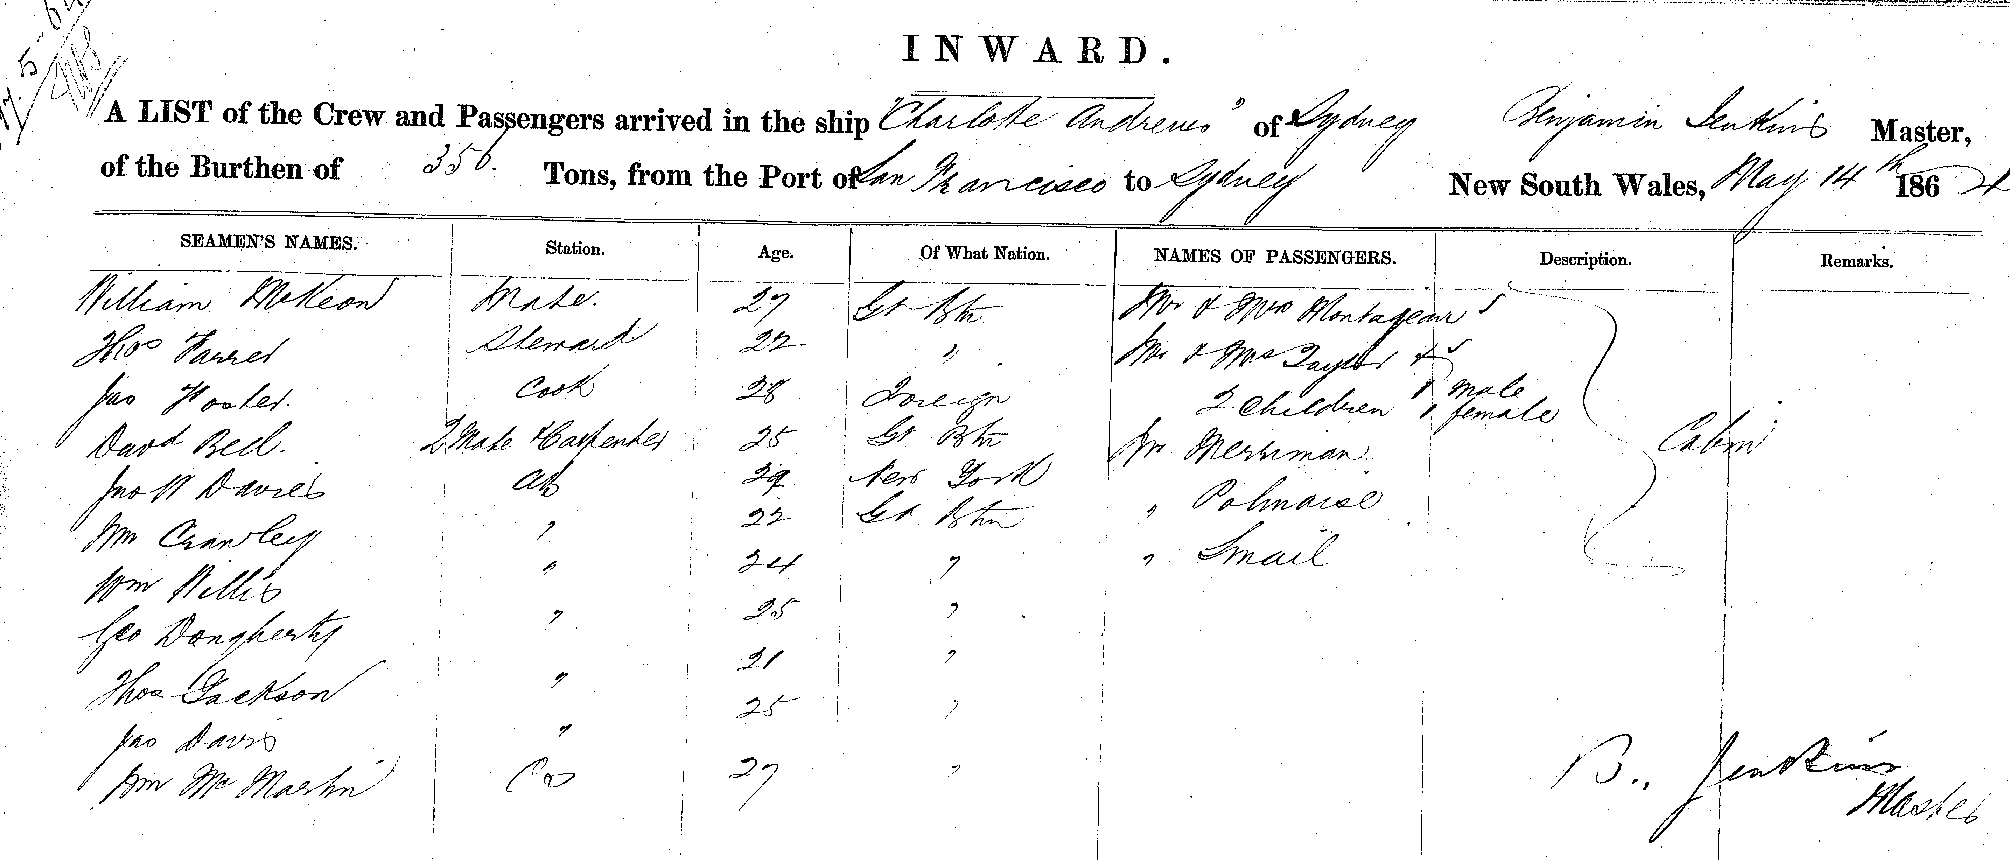 17.5.64
INWARD.
A LIST of the Crew and Passengers arrived in the ship "Charlotte Andrews" of Sydney Benjamin Jenkins Master,
of the Burthen of 356. Tons, from the Port of San Francisco to Sydney New South Wales, May 14th 1864
SEAMEN'S NAMES. Station. Age. Of What Nation. NAMES OF PASSENGERS. Description. Remarks.
William McKeon Mate. 27 Gt Btn Mr & Mrs Montageau
Thos Farrel Steward 22 " Mr & Mrs Taylor &
Jas Foster. Cook 28 Foreign 2 Children 1 male
1 female
Davd Bell. 2 Mate & Carpenter 25 Gt Btn Mr Merriman Cabin
Jno W Davies AB 29 New York
Wm Crawley " 22 Gt Btn " Polmaise
Wm Willis " 24 " " Smail
Geo Dougherty " 25 "
Thos Jackson " 21 "
Jas Davis " 25 "
Wm McMartin 27 "
B. Jenkins
Master